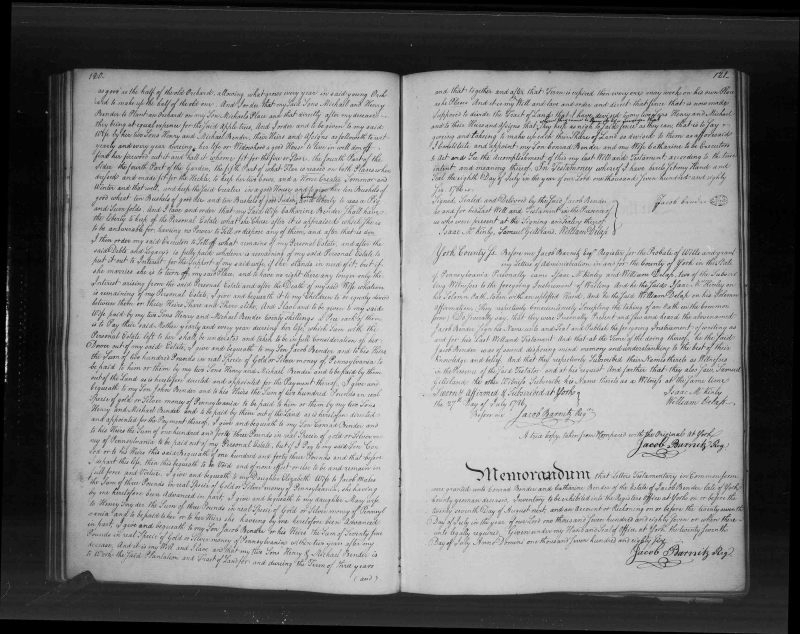 120.
as good as the half of the old Orchard, allowing what grows every year in said young Orch
ard to make up the half of the old one. And I order that my said Sons Michall and Henry
Bender to Plant an Orchard on my Son Michaels Place and that directly after my decease
they being at equal expence for the said apple trees, And I order and to be given to my said
Wife by her two Sons Henry and Michael Bender, their Heirs and Assigns as followeth to wit
yearly and every year during her life or Widowhood a good House to live in well don off
find her firewood cut it and hall it whome fit for the fire or Stove, the fourth Part of the
Older the fourth Part of the Garden, the fifth Part of what Flax is raised on both Places when
and made fit for the Hatchle, to keep her two Cows, and a Horse Creater Sommer and
Winter and that well, and keep the said Creaters in a good House and to give her ten Bushels of
good wheat ten Bushels of good Rye and ten Bushels of good Indian Corn yearly to raise a Pig
and Turn folds. And I Give and order that my said Wife Catharine Bender Shall have
the Liberty to keep of the Personal Estate what She Chuse after it is appraised which She is
to be answerable for having no Power to Sell or dispose any of them, and after that is don
I then order my said Executors to Sell off what remains of my Personal Estate, and after the
said Debts and Legacys is fully paid whatever is remaining of my said Personal Estate to
put it out to Interest for the Support of my said wife if She stands in need of it; but if
she marries she is to turn off my said Place, and to have no right there any longer only the
Interest arising from the said Personal Estate and after the Death of my said Wife whatever
is remaining of my Personal Estate, I give and bequeath it to my Children to be equally divided
between them or their Heirs Share and Share alike, And I say and to be given to my said
Wife paid by my two Sons Henry and Michael Bender twenty shillings a Piece early them
is to Pay their said Mother yearly and every year dureing her life, which Sum with the
Personal Estate left to her Shall be understood and taken to be in full Consideration of her
Dower out of my said Estate, I give and bequeath to my Son Jacob Bender and to his Heirs
the Sum of two Hundred Pounds in real Specie of Gold or Silver money of Pennsylvania to
be paid to him or them by my two Sons Henry and Michael Bender and to be paid by them
out of the Land as is heretofore devided and appointed for the Payment thereof, I give and
bequeath to my Son John Bender and to his Heirs the Sum of two hundred Pounds in real
Specie of gold or Silver money of Pennsylvania to be paid to him or them by my two Sons
Henry and Michael Bender and to be paid by them out of the Land as is heretofore directed
and appointed for the Payment thereof, I give and bequeath to my Son Conrad Bender and
to his Heirs the Sum of one hundred and forty three Pounds in real Specie of gold or Silver mo
ny of Pennsylvania to be paid out of my Personal Estate, but if I Pay to my said Son Con
rad or to his Heirs this said Bequeath of one hundred and forty three Pounds and that before
I depart this life, then this bequeath to be Void and of none effect or else to be and remain in
full force and Vertue. I give and bequeath to my Daughter Elizabeth Wife to Jacob Wales
the Sum of three Pounds in real Specie of Gold or Silver money of Pennsylvania, she having
by me heretofore been Advanced in part, I give and bequeath to my daughter Mary wife
to Henry Snyder the Sum of three Pounds in real Specie of Gold or Silver money of Pennsyl
vania and to be paid to her or to her Heirs she having by me heretofore been advanced
in part. I give and bequeath to my Son Jacob Bender or his Heirs the Sum of Seventy five
Pounds in real Specie of Gold or Silver money of Pennsylvania within two years after my
decease, And it is my Will and I order and that my two Sons Henry & Michael Bender is
to Work the said Plantation and Tract of Land for and dureing the Term of three years
(and)
121.
and that together and after that Term is expired then every one may work on his own Plan
as he Please And it is my Will and Law and order and direct that fence that is now made
Supposed to divide the Tract of Land that I have devised to my two Sons Henry and Michael
and to their Heirs and Assigns that they keep as need to such fence as they can; that is to Say
paying and takeing to make and uphold their Places of Land as devised to them as aforesaid
I Constitute and appoint my Son Conrad Bender and my Wife Catharine to be Executors
to Act and See the Accomplishment of this my last Will and Testament according to the true
intent and meaning thereof, In Testimony whereof I have hereto set my Hand and
Seal the eighth Day of July in the year of our Lord one thousand Seven hundred and eighty
Six 1786
Signed, Sealed and Delivered by the said Jacob Bender
as and for his last Will and Testament in the Presence of
us who were present at the Signing and Sealing thereof
Isaac McKinly, Samuel Gilliland, William Delap
Jacob Bender Seal
York County Ss. Before me Jacob Barnitz Esqr Register for the Probate of Wills and grant
ing Letters of Administration in and for the County of York in the State
of Pennsylvania Personally came Isaac McKinly and William Delap, two of the Subscri
bing Witnesses to the foregoing Instrument of Writing And the said Isaac McKinly on
his Solemn Oath taken with an uplifted Hand; And the said William Delap on his Solemn
Affirmation, They respectively conscientiously Scrupling the takeing of an Oath in the common
form; Did Severally Say, that they were Personally Present and Saw and heard the abovenamed
Jacob Bender Sign his Name unto and Seal and Publish the foregoing Instrument of writing as
and for his Last Will and Testament And that at the Time of the doing thereof, he the said
Jacob Bender was of sound disposing mind memory and understanding to the best of their
Knowledge and belief And that they respectively Subscribed their Names thereto as Witnesses
in the Presence of the said Testator and at his request And further that they also Saw Samuel
Gilliland the other Witness Subscribe his Name thereto as a Witness at the same time
Sworn & affirmed & Subscribed at York
the 27th Day of July 1786,
Before me Jacob Barnitz Regr
Isaac McKinly
William Delap.
A true Copy, taken from & Compared with the Original at York
Jacob Barnitz Reg.
Memorandum that Letters Testamentary in Common form
were granted unto Conrad Bender and Catharine Bender of the Estate of Jacob Bender late of York
County yeoman deceased, Inventory to be exhibited into the Registers Office at York on or before the
twenty seventh Day of August next and an Account or Reckoning on or before the twenty seventh
Day of July in the year of our Lord one thousand Seven hundred and eighty Seven or when there
unto legally required, Given under my Hand and Seal of Office at York the twenty seventh
Day of July Anno Domini one thousand seven hundred and eighty six
Jacob Barnitz Regr